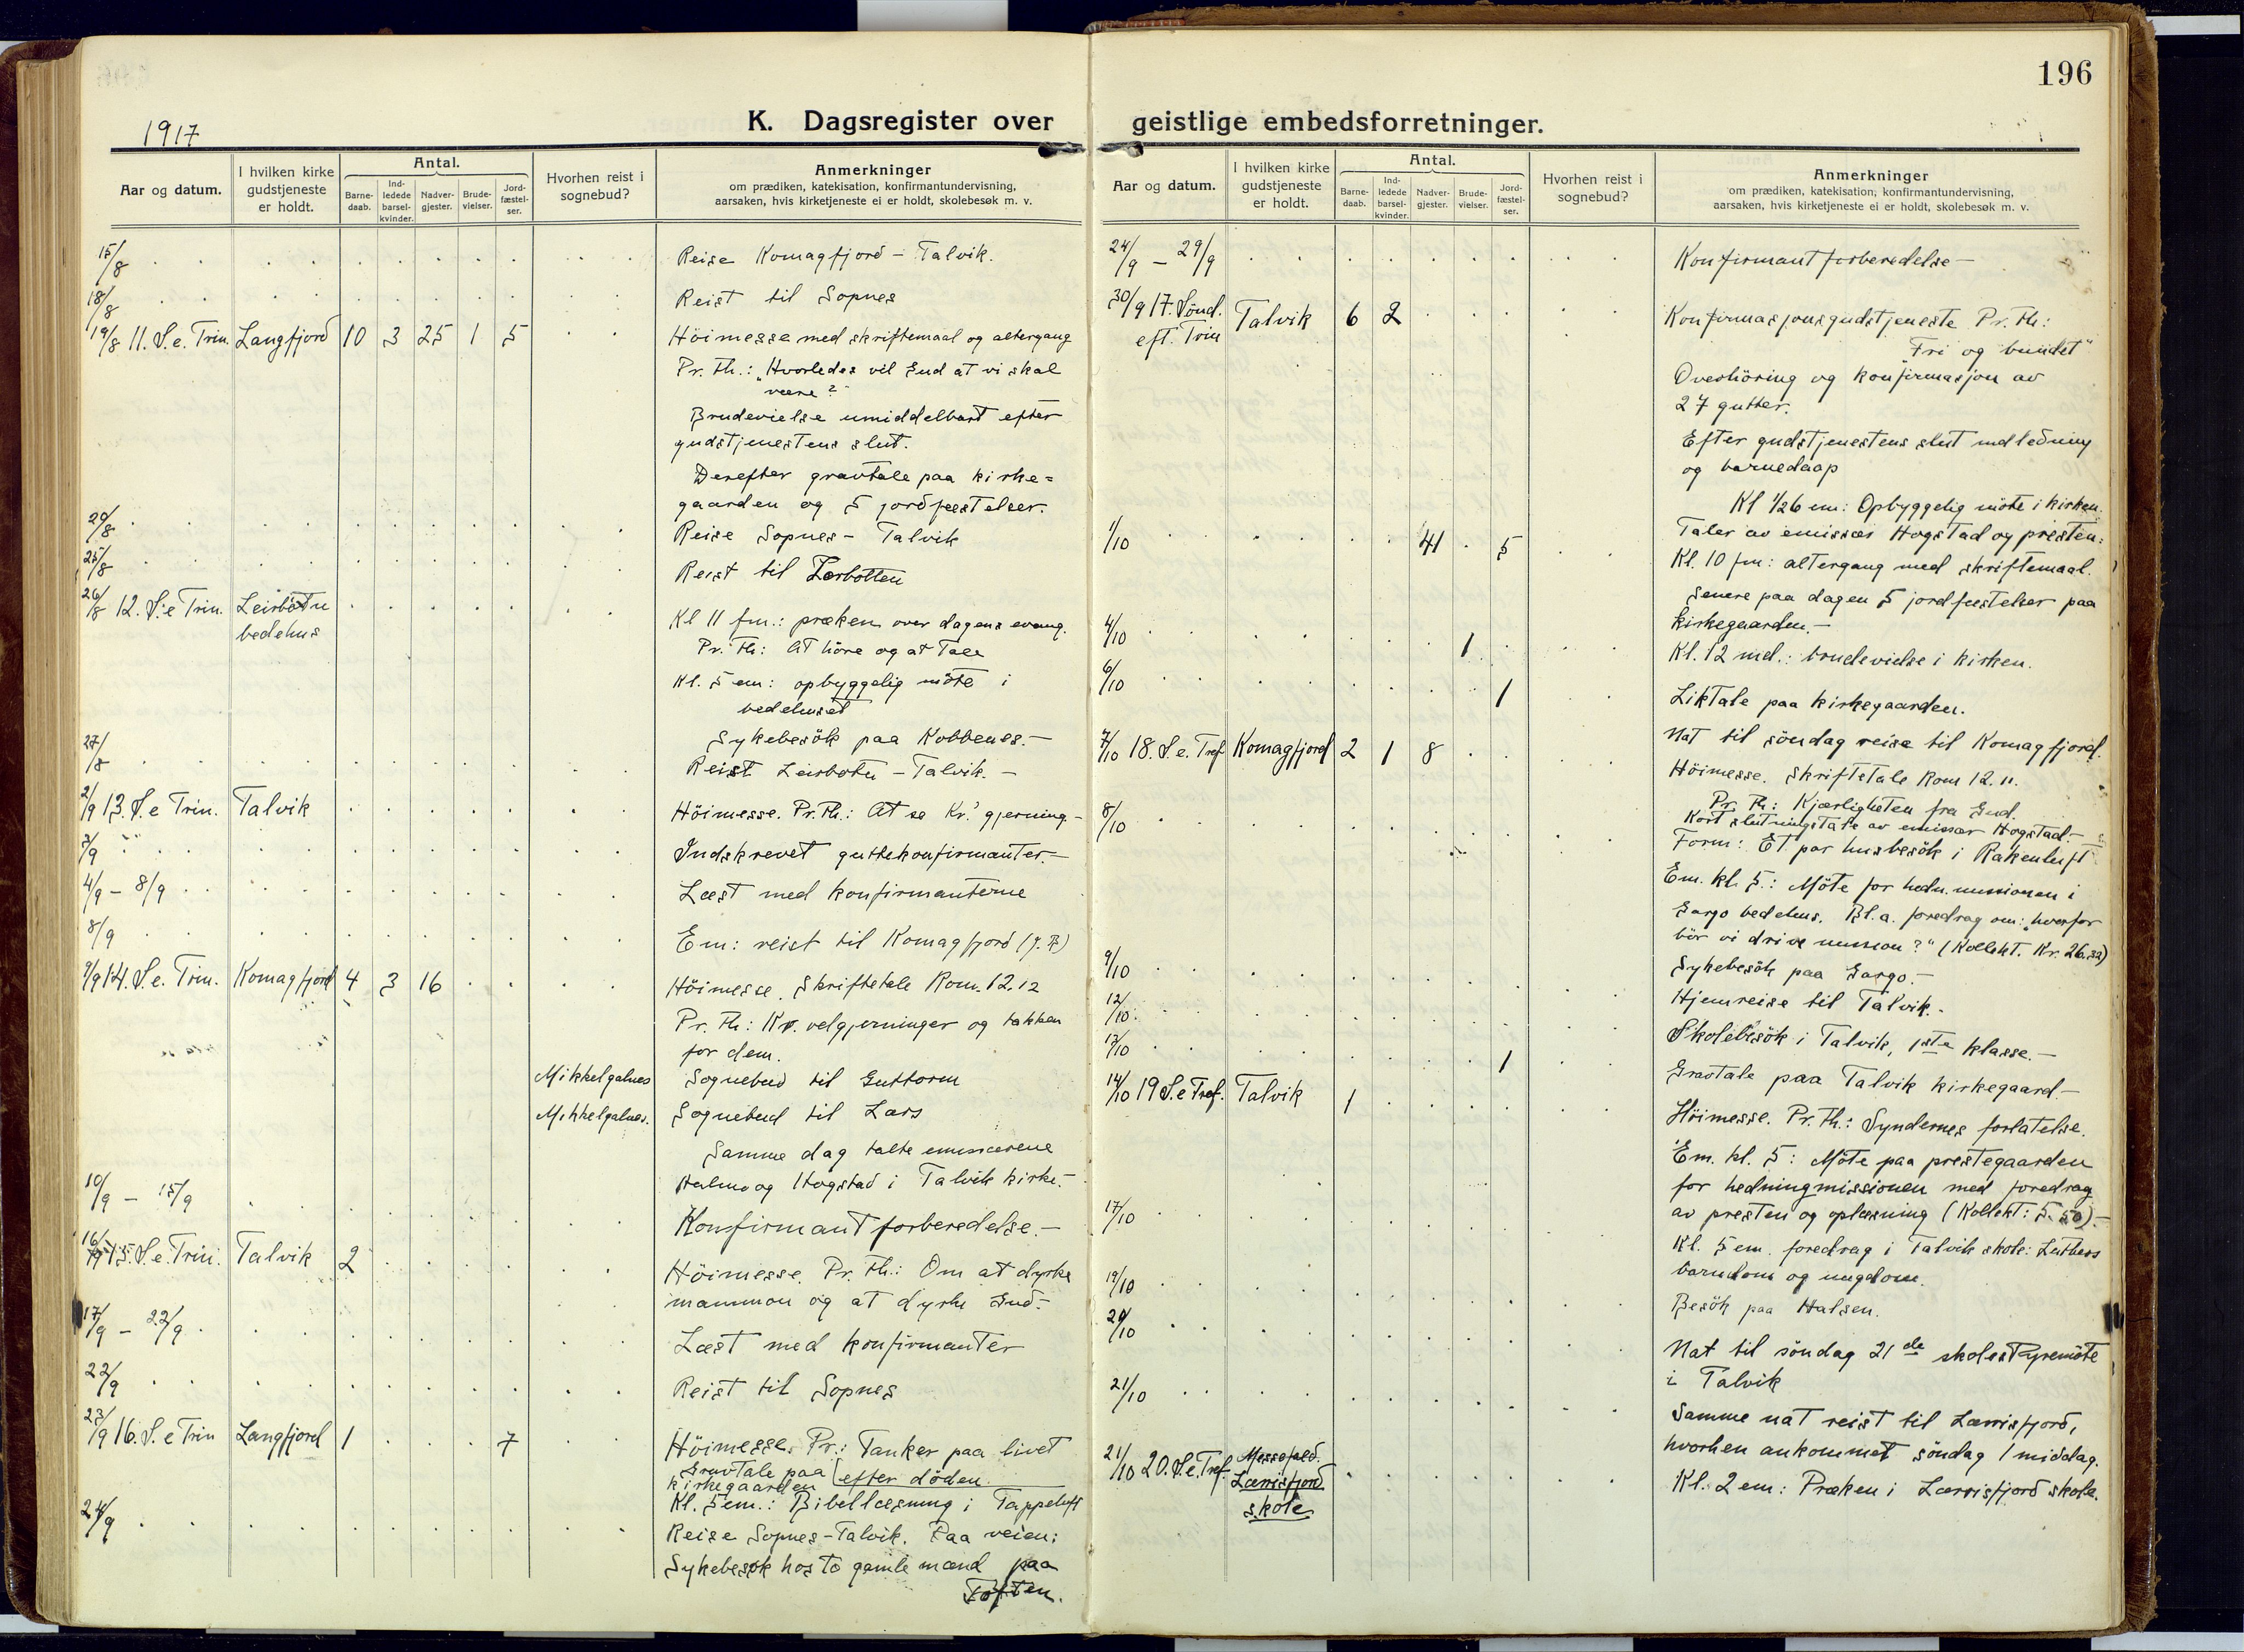 196
1917
K. Dagsregister over geistlige embedsforretninger.
Aar og datum.
I hvilken kirke gudstjeneste er holdt.
Antal.
Barne-daab.
Ind-ledede barsel-kvinder.
Nadver-gjester.
Brude-vielser.
Jord-fæstel-ser.
Hvorhen reist i sognebud?
Anmerkninger
om prædiken, katekisation, konfirmantundervisning,
aarsaken, hvis kirketjeneste ei er holdt, skolebesøk m. v.
15/8 Reise Komagfjord - Talvik.
18/8 Reist til Sopnes
19/8 11. S. e. Trin. Langfjord 10 3 25 1 5 Höimesse med skriftemaal og altergang
Pr. Th.: "Hvorledes vil Gud at vi skal
være?"
Brudevielse umiddelbart efter
gudstjenestens slut.
Derefter gravtale paa kirke=
gaarden og 5 jordfæstelser.
20/8 Reise Sopnes - Talvik
25/8 Reist til Lerbotten
26/8 12. S. e Trin. Leirbotn Kl 11 fm.: præken over dagens evang.
bedehus Pr. Th: At höre og at tale
Kl. 5 em: opbyggelig möte i
bedehuset
Sykebesök paa Kobbenes. -
27/8 Reist Leirbotn - Talvik. -
2/9 13. S. e Trin. Talvik Höimesse. Pr. Th.: At se Kr.' gjerning. -
3/9 Indskrevet guttekonfirmanter. -
4/9 - 8/9 Læst med konfirmanterne
8/9 Em: reist til Komagfjord
9/9 14. S. e. Trin. Komagfjord 4 3 16 Höimesse. Skriftetale Rom. 12.12
Pr. Th: Kr. velgjerninger og takken
for dem.
Mikkelgalnes Sognebud til Guttorm
Mikkelgalnes. Sognebud til Lars
Samme dag talte emissærene
Halmo og Hogstad i Talvik kirke. -
10/9 - 15/9 Konfirmantforberedelse. -
16/9 15. S. e. Trin. Talvik 2 Höimesse. Pr. Th.: Om at dyrke
mammon og at dyrke Gud. -
17/9 - 22/9 Læst med konfirmanter
22/9 Reist til Sopnes
23/9 16. S. e Trin Langfjord 1 7 Höimesse. Pr.: Tanker paa livet
efter döden.
Gravtale paa
kirkegaarden
Kl. 5 em.: Bibellæsning i Tappeluft
24/9 Reise Sopnes-Talvik. Paa veien:
Sykebesøk hos to gamle mænd paa
Toften.
Aar og datum.
I hvilken kirke gudstjeneste er holdt.
Antal.
Barne-daab.
Ind-ledede barsel-kvinder.
Nadver-gjester.
Brude-vielser.
Jord-fæstel-ser.
Hvorhen reist i sognebud?
Anmerkninger
om prædiken, katekisation, konfirmantundervisning,
aarsaken, hvis kirketjeneste ei er holdt, skolebesøk m. v.
24/9 - 29/9 Konfirmantforberedelse -
30/9 17. Sönd. Talvik 6 2 Konfirmasjonsgudstjeneste Pr. Th:
eft. Trin "Fri og bundet"
Overhöring og konfirmasjon av
27 gutter.
Efter gudstjenestens slut indledning
og barnedaap
Kl 1/2 6 em: Opbyggelig möte i kirken.
Taler av emissær Hogstad og presten.
1/10 41 5 Kl. 10 fm: altergang med skriftemaal.
Senere paa dagen 5 jordfæstelser paa
kirkegaarden. -
4/10 1 Kl. 12 md.: brudevielse i kirken.
6/10 1 Liktale paa kirkegaarden.
Nat til söndag reise til Komagfjord.
7/10 18. S. e. Tref Komagfjord 2 1 8 Höimesse. Skriftetale Rom 12.11.
Pr. Th: Kjærligheten fra Gud.
Kort slutningstale av emissær Hogstad. -
8/10 Form: Et par husbesök i Rakenluft
Em. kl. 5: Möte for hedn. missionen i
Gargo bedehus. Bl. a. foredrag om: "hvorfor
bör vi drive mission?" (Kollekt. Kr. 26.32)
Sykebesök paa Gargo. -
9/10 Hjemreise til Talvik. -
12/10 Skolebesök i Talvik, 1ste klasse. -
13/10 1 Gravtale paa Talvik kirkegaard -
14/10 19 S. e Tref. Talvik 1 Höimesse. Pr. Th.: Syndernes forlatelse.
Em. kl. 5: Möte paa prestegaarden
for hedningmissionen med foredrag
av presten og oplæsning (Kollekt: 5.50). -
17/10 Kl. 5 em. foredrag i Talvik skole: Luthers
barndom og ungdom.
19/10 Besök paa Halsen.
20/10 Nat til söndag 21de skolestyremöte
i Talvik
21/10 Samme nat reist til Lærrisfjord,
hvorhen ankommet söndag 1 middag.
21/10 20. S. e. Tref Messefald. Kl. 2 em: Præken i Lærrisfjord skole.
Lærrisfjord
skole